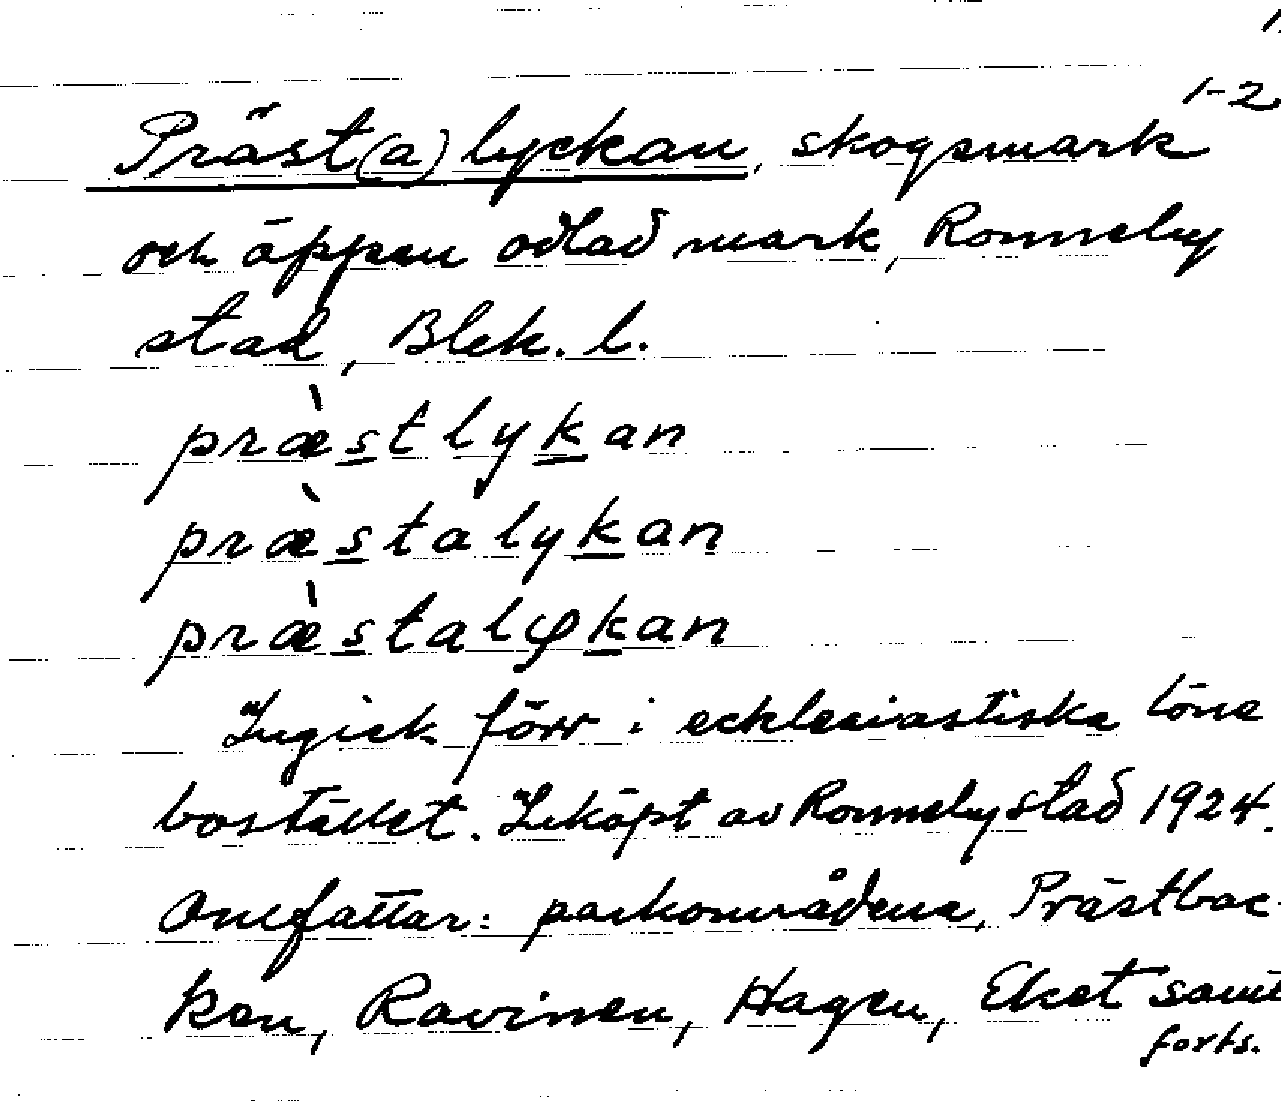 1-2
Präst(a)lyckan, skogsmark
och öppen odlad mark, Ronneby
stad, Blek. l.
præ̀stlykan
præ̀stalykan
præ̀stalφkan
Ingick förr i ecklesiastiska löne
bostället. Inköpt av Ronneby stad 1924.
Omfattar: parkområdena, Prästbac-
ken, Ravinen, Hagen, Eket samt
forts.